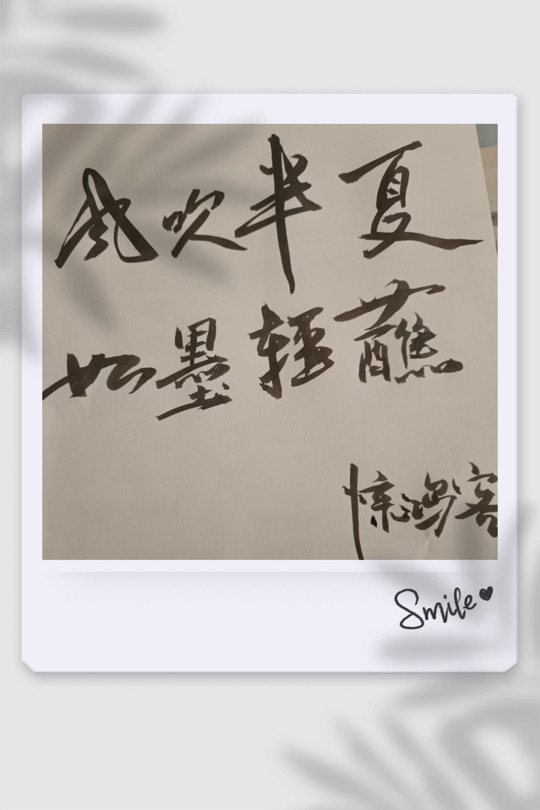 风吹半夏
如墨轻蘸
惊鸿客
Smile